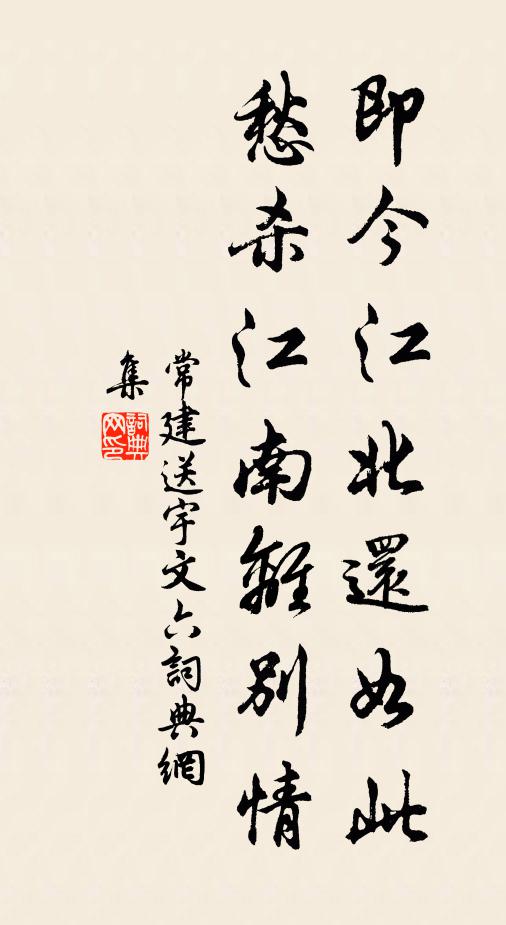 即今江北還如此
愁杀江南離別情
常建送宇文六詞典網
集
詞典
网印